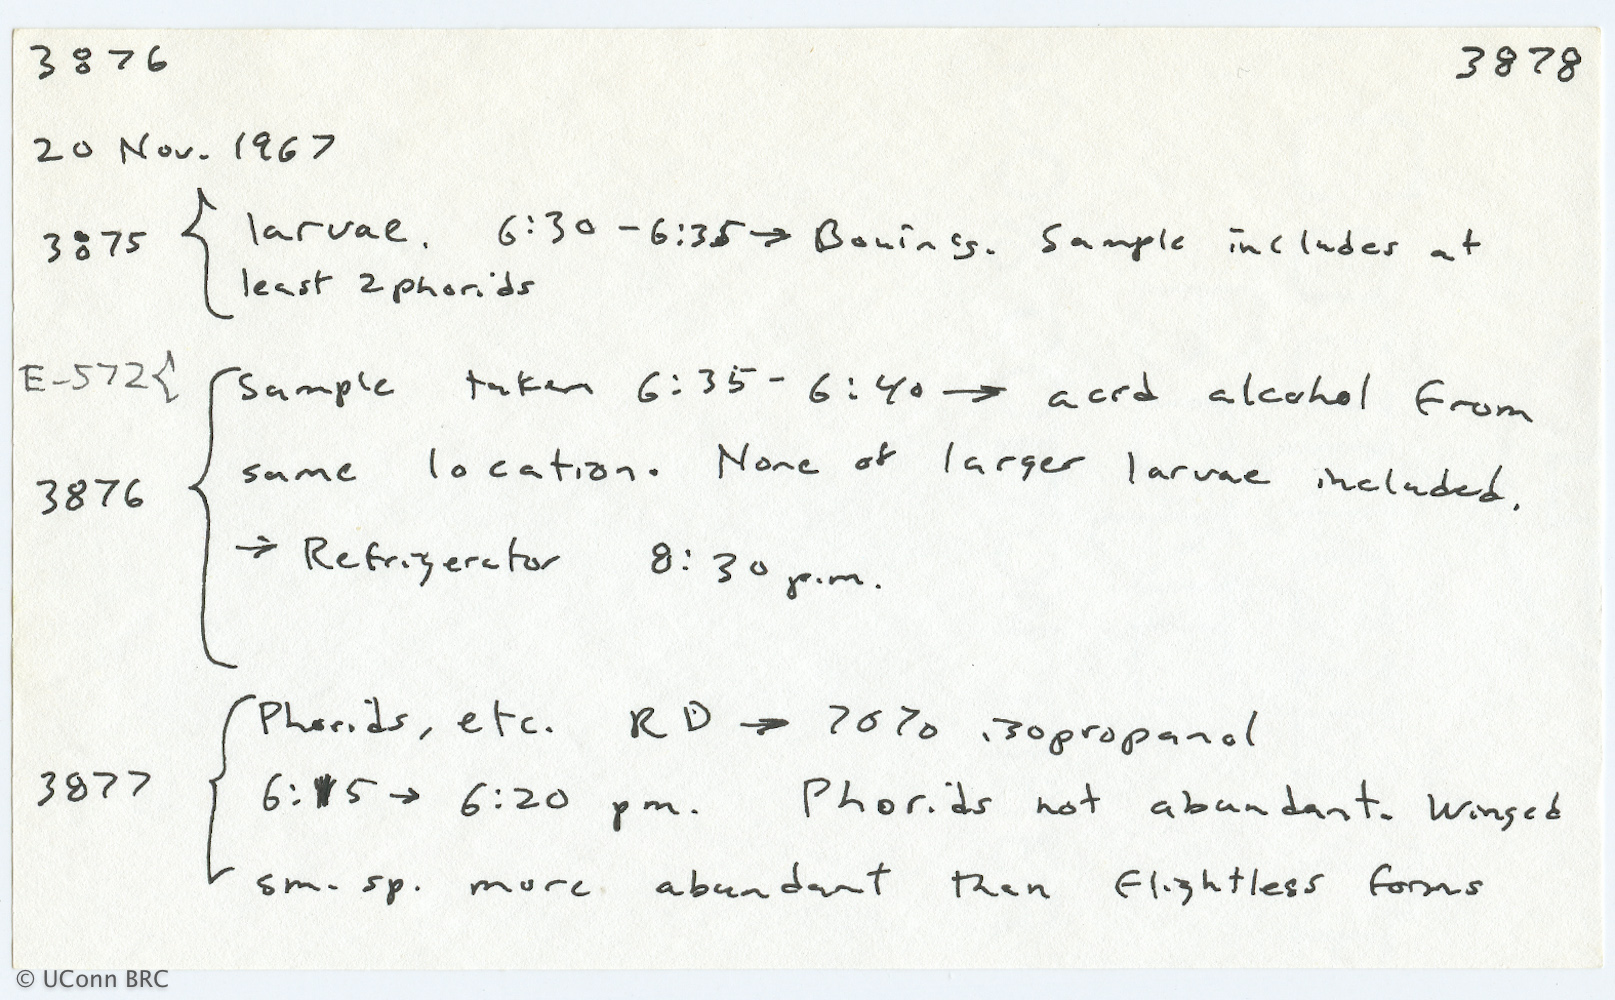 3876 3878
20 Nov. 1967
3875 { larvae. 6:30 - 6:35 → Bouings. Sample includes at
least 2 phorids
E-572 { Sample taken 6:35 - 6:40 → acrd alcohol from
same location. None of larger larvae included.
3876
→ Refrigerator 8:30 p.m.
Phorids, etc. RD → 70% isopropanol
3877 { 6:15 → 6:20 pm. Phorids not abundant. Winged
sm. sp. more abundant than flightless forms
© UConn BRC